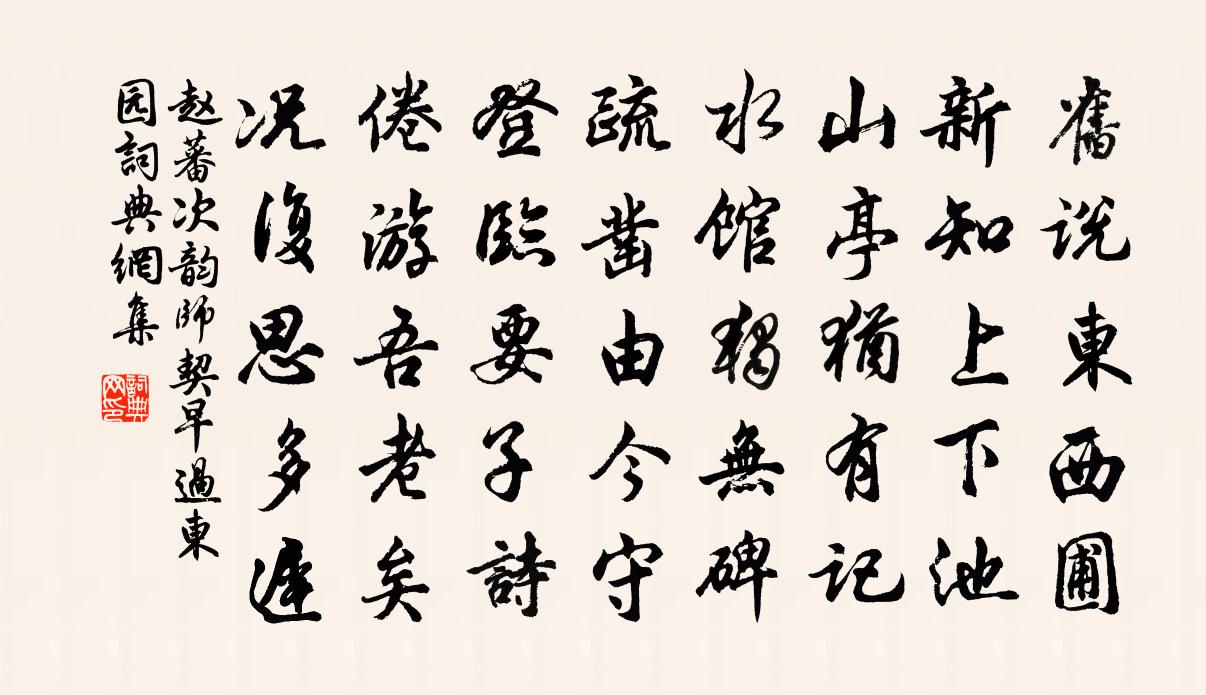 舊説東西圃
新知上下池
山亭猶有記
水館獨無碑
疏鑿由今守
登臨要子詩
倦游吾老矣
况復思多遲
赵蕃次韵師契早過東
园詞典網集
詞典网印